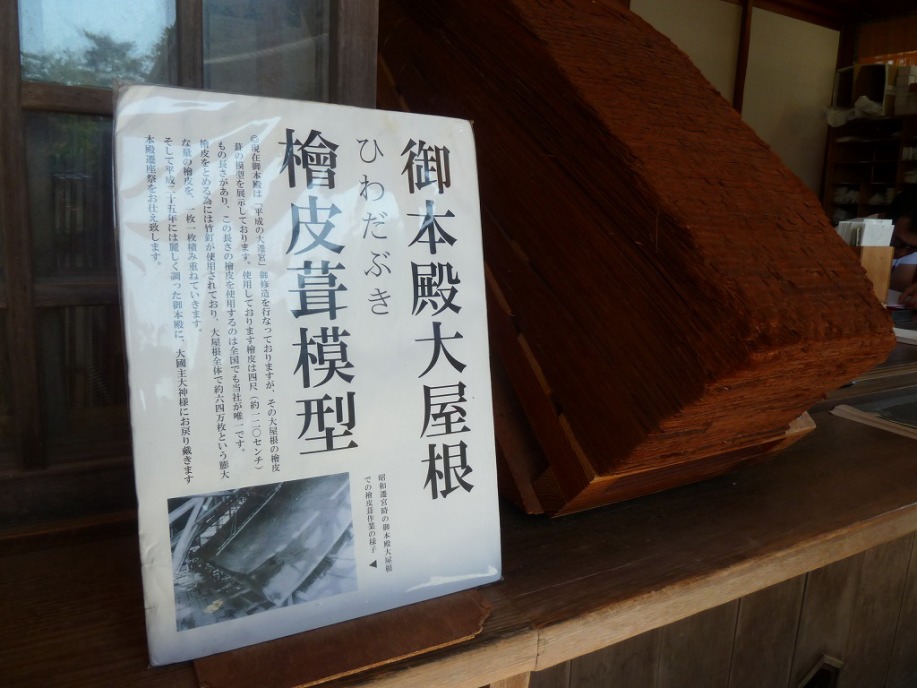 御本殿大屋根
ひわだぶき
檜皮葺模型
◎現在御本殿は「平成の大遷宮」御修造を行なっておりますが、その大屋根の檜皮
葺の模型を展示しております。使用しております檜皮は四尺（約一二〇センチ）
もの長さがあり、この長さの檜皮を使用するのは全国でも当社が唯一です。
檜皮をとめる為には竹釘が使用されており、大屋根全体で約六四万枚という膨大
な量の檜皮を、一枚一枚積み重ねていきます。
そして平成二十五年には麗しく調った御本殿に、大國主大神様にお戻り戴きます
本殿遷座祭をお仕え致します。
昭和遷宮時の御本殿大屋根
での檜皮葺作業の様子▲